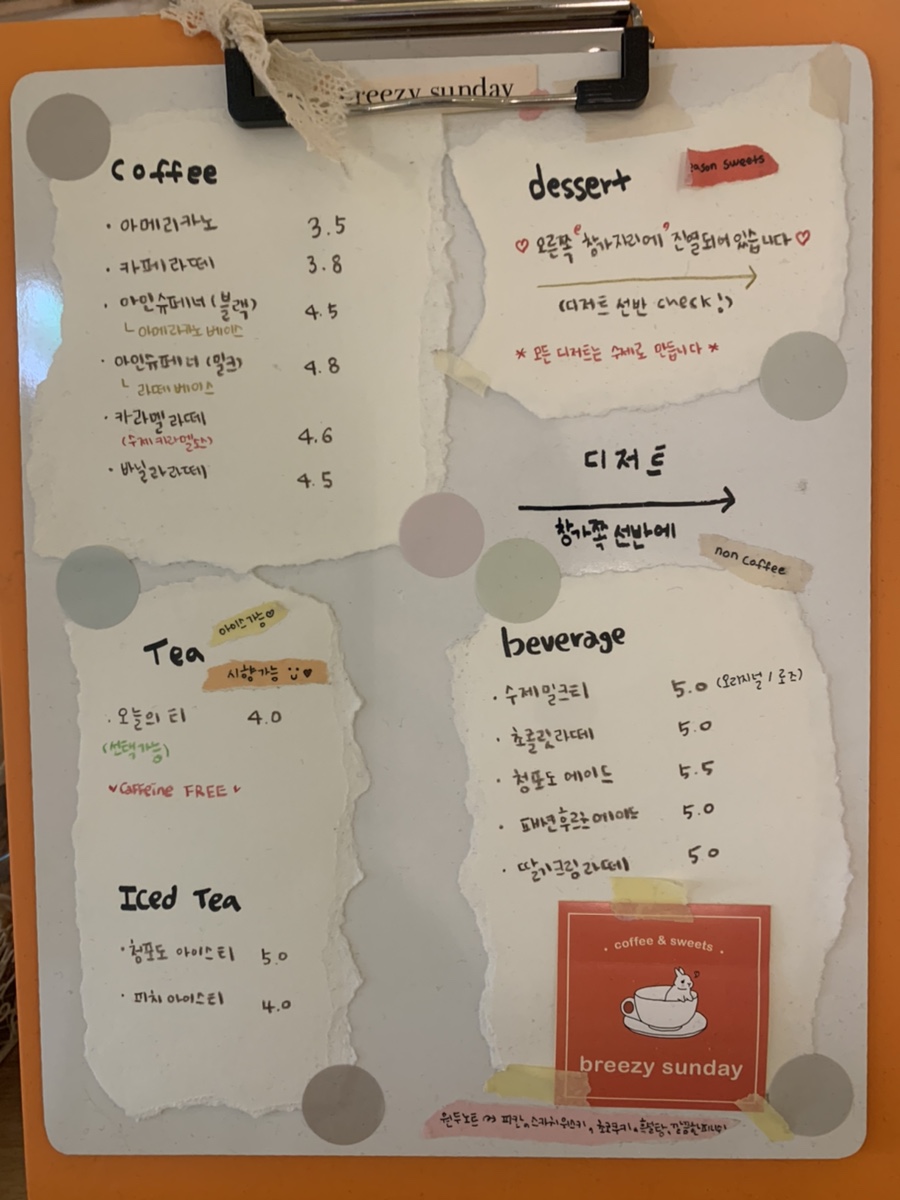 breezy sunday
coffee
· 아메리카노 3.5
· 카페라떼 3.8
· 아인슈페너 (블랙) 4.5
└ 아메리카노 베이스
· 아인슈페너 (밀크) 4.8
└ 라떼 베이스
· 카라멜라떼
(수제카라멜소스) 4.6
· 바닐라라떼 4.5
dessert
season sweets
♡ 오른쪽 "창가자리에" 진열되어 있습니다 ♡
(디저트 선반 check!)
* 모든 디저트는 수제로 만듭니다 *
디저트
창가쪽 선반에
Tea
아이스가능♡
시향가능
· 오늘의 티 4.0
(선택가능)
Caffeine FREE
Iced Tea
· 청포도 아이스티 5.0
· 피치 아이스티 4.0
non coffee
beverage
· 수제밀크티 5.0 (오리지널 / 로즈)
· 초콜릿라떼 5.0
· 청포도 에이드 5.5
· 패션후르츠에이드 5.0
· 딸기크림라떼 5.0
· coffee & sweets ·
breezy sunday
원두노트 피칸, 스카치위스키, 초코쿠키, 흑설탕,